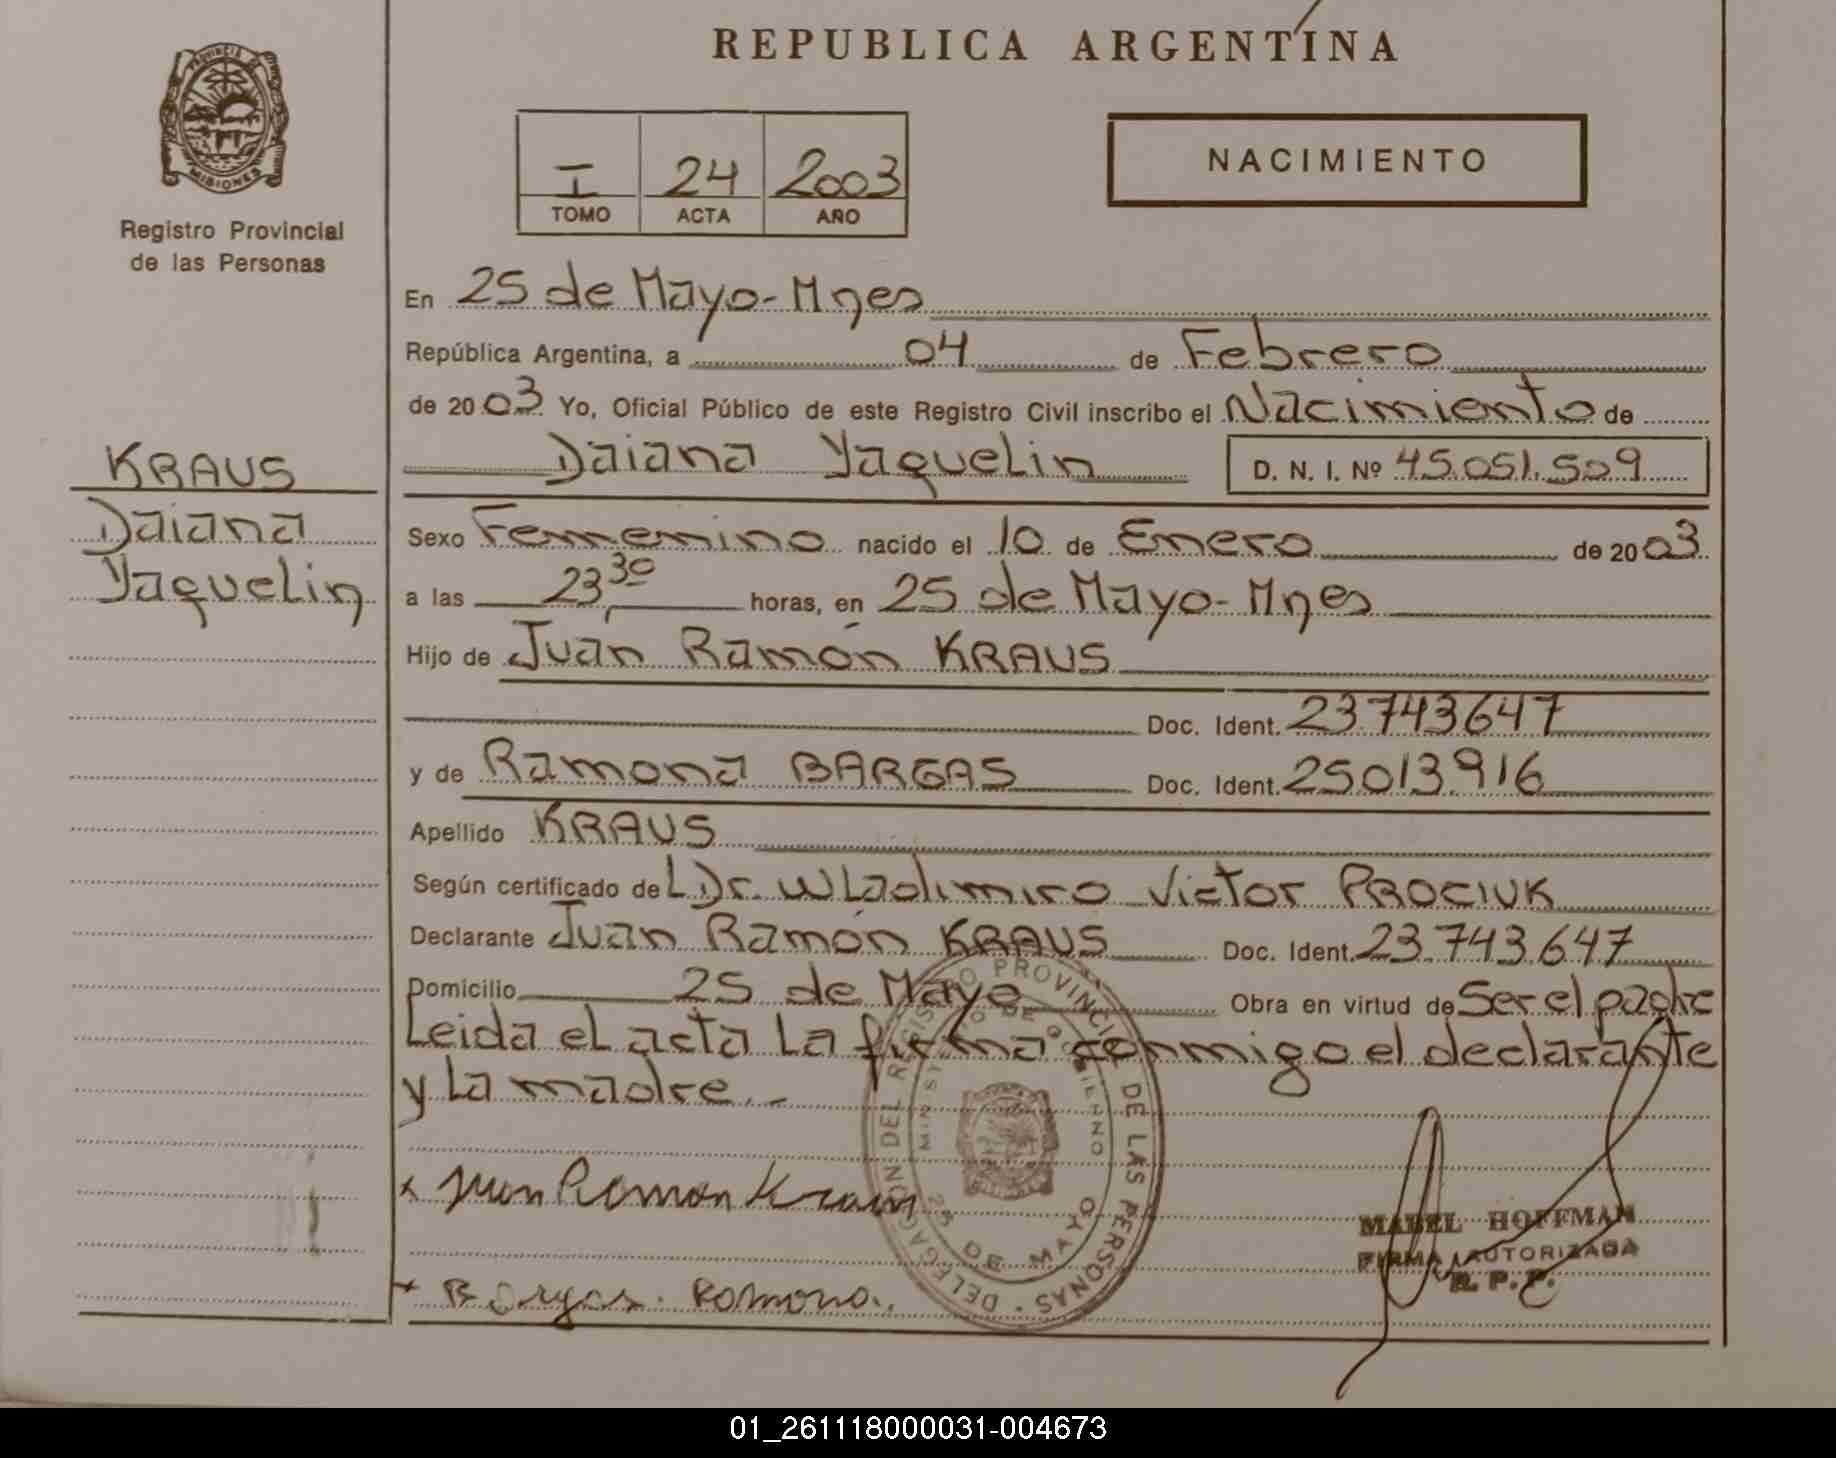 REPUBLICA ARGENTINA
PROVINCIA DE
MISIONES
Registro Provincial
de las Personas
I 24 2003
TOMO ACTA AÑO
NACIMIENTO
En 25 de Mayo-Mnes
República Argentina, a 04 de Febrero
de 2003 Yo, Oficial Público de este Registro Civil inscribo el Nacimiento de
Daiana Yaquelin D. N. I. Nº 45.051.509
KRAUS
Daiana
Yaquelin
Sexo Femenino nacido el 10 de Enero de 2003
a las 23,30 horas, en 25 de Mayo-Mnes
Hijo de Juán Ramón KRAUS
Doc. Ident. 23743647
y de Ramona BARGAS Doc. Ident. 25013916
Apellido KRAUS
Según certificado del Dr. Wladimiro Victor PROCIUK
Declarante Juan Ramón KRAUS Doc. Ident. 23.743.647
Domicilio 25 de Mayo Obra en virtud de Ser el padre
Leida el acta la firma conmigo el declarante
y la madre.-
x Juan Ramon Kraus
x Bargas. Romona.
DELEGACION DEL REGISTRO PROVINCIAL DE LAS PERSONAS
MINISTERIO DE GOBIERNO
25 DE MAYO
MABEL HOFFMAN
FIRMA AUTORIZADA
R. P. P.
01_261118000031-004673